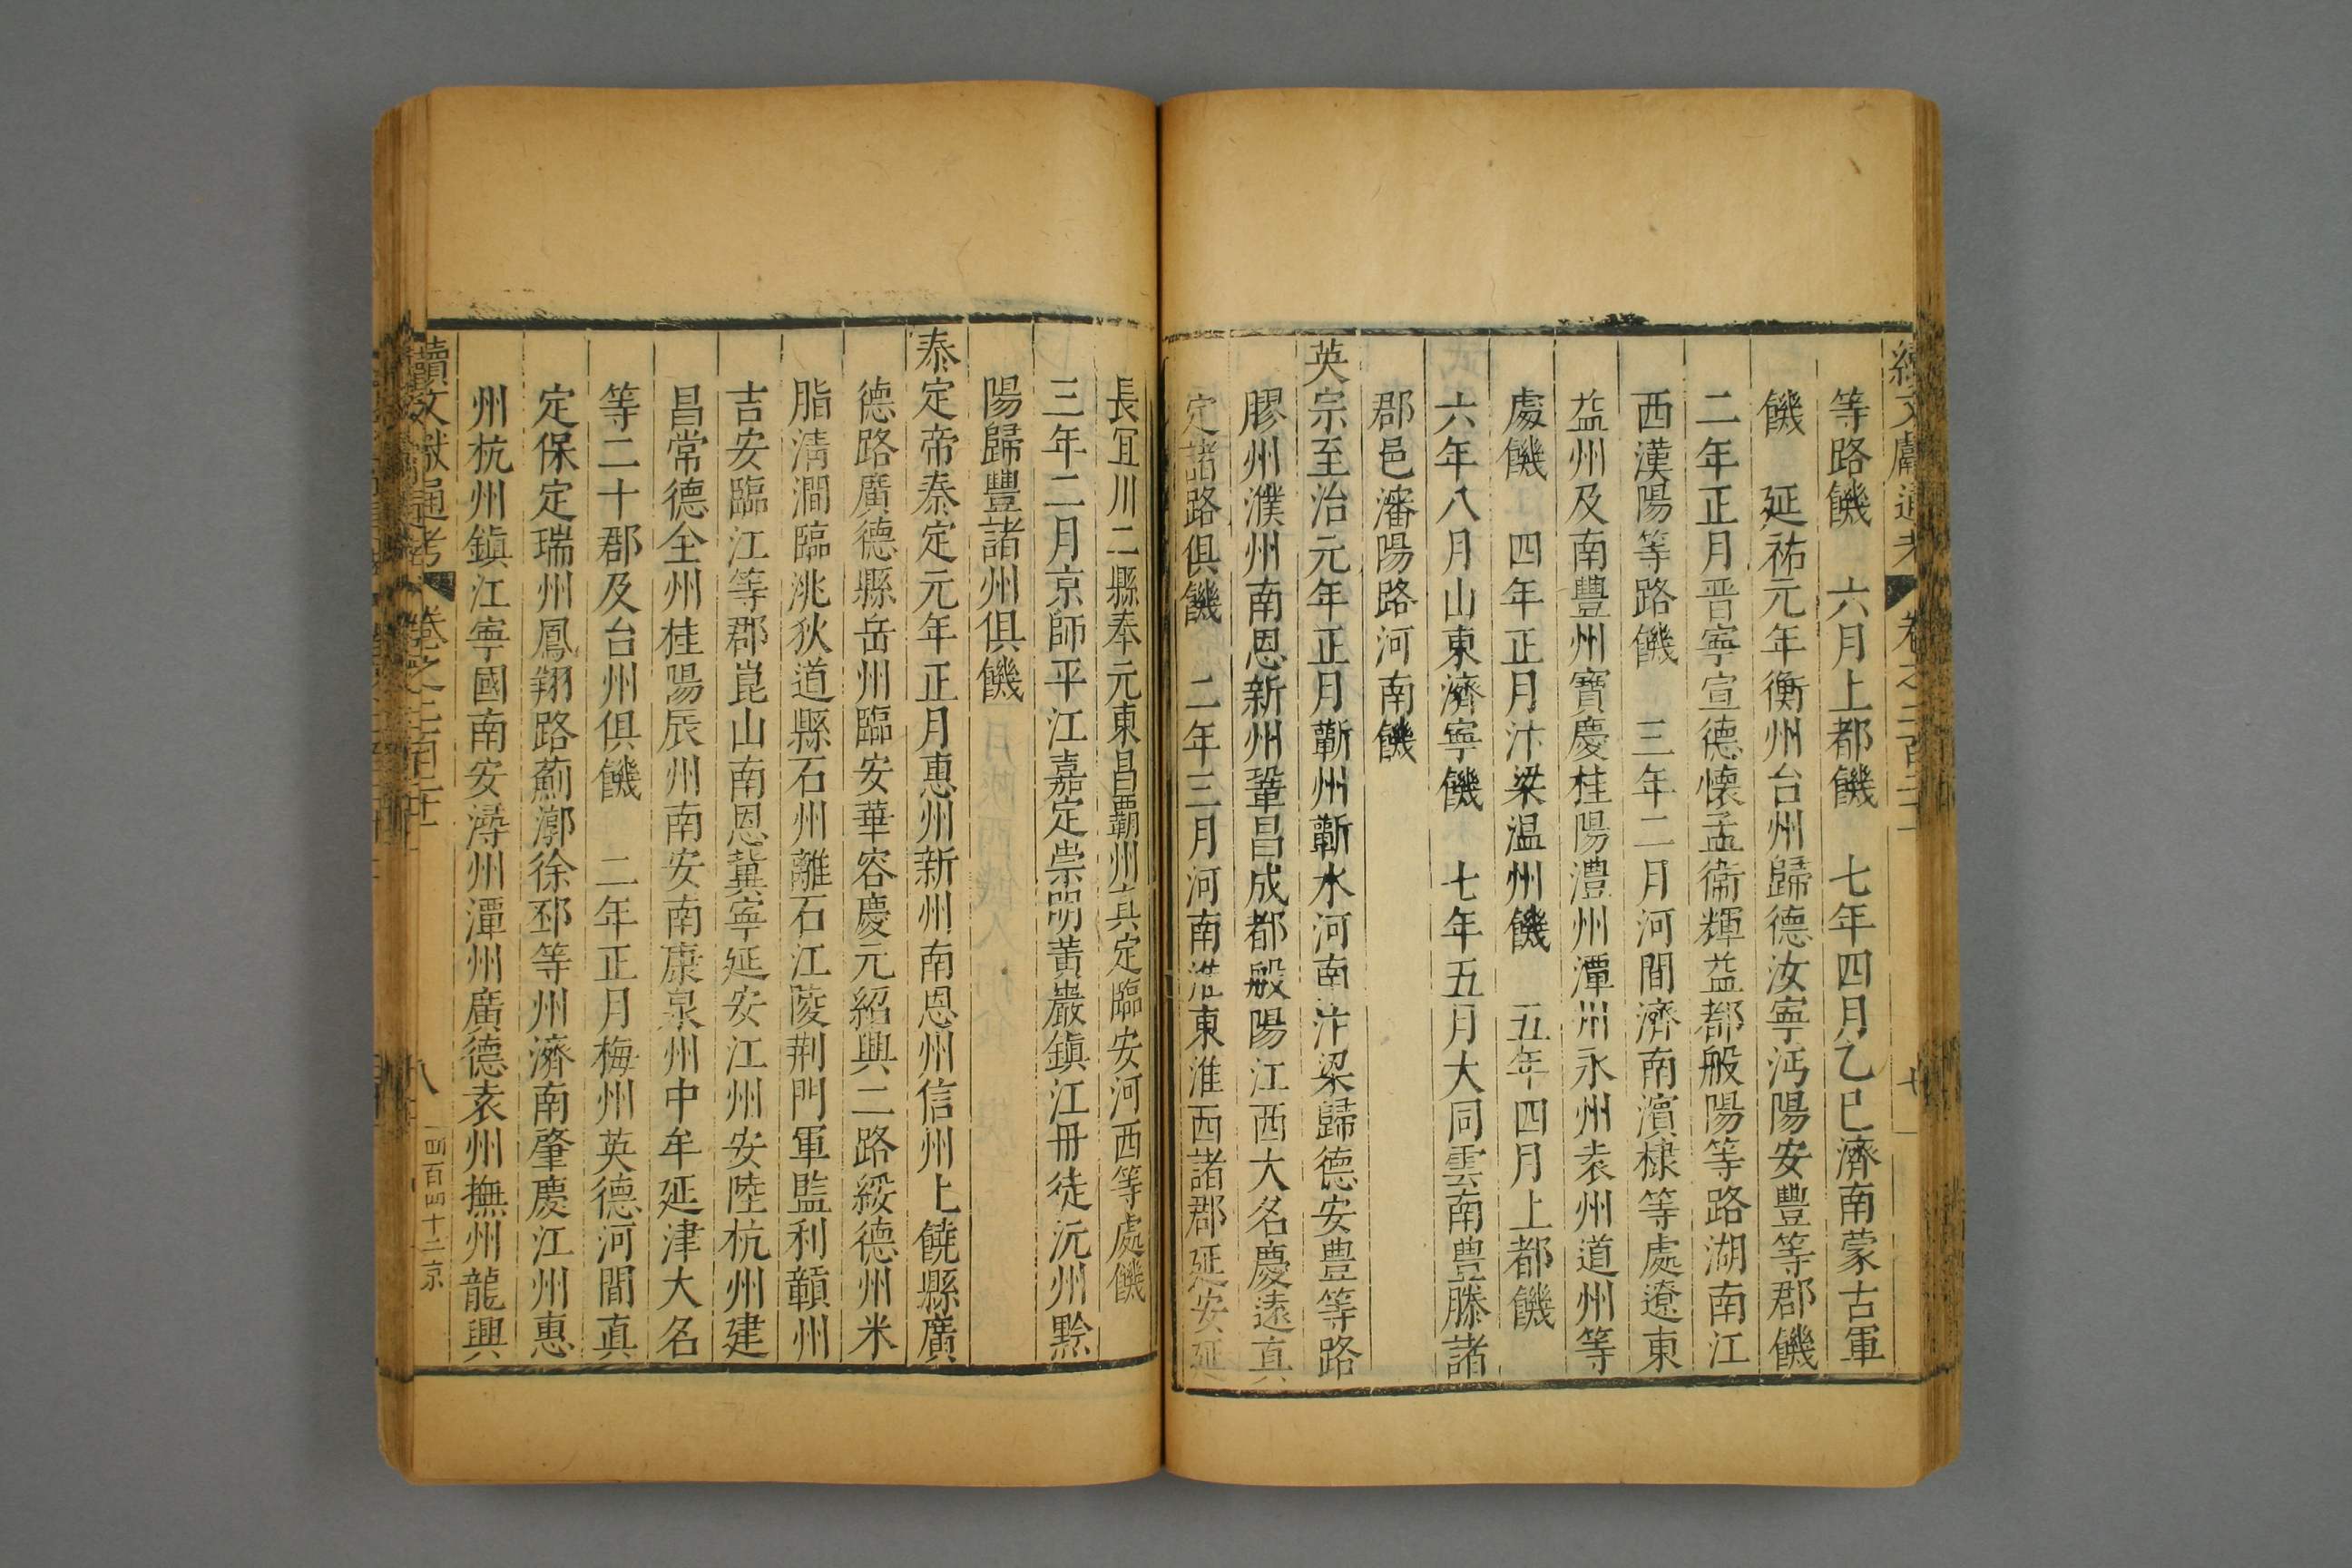 續文獻通考 卷之二百二十 七
等路饑 六月上都饑 七年四月乙巳濟南蒙古軍
饑 延祐元年衡州台州歸德汝寧沔陽安豐等郡饑
二年正月晋寧宣德懷孟衞輝益都般陽等路湖南江
西漢陽等路饑 三年二月河間濟南濱棣等處遼東
益州及南豐州寶慶桂陽澧州潭州永州袁州道州等
處饑 四年正月汴梁温州饑 五年四月上都饑
六年八月山東濟寧饑 七年五月大同雲南豊滕諸
郡邑瀋陽路河南饑
英宗至治元年正月蘄州蘄水河南汴梁歸德安豊等路
膠州濮州南恩新州鞏昌成都般陽江西大名慶遠真
定諸路俱饑 二年三月河南淮東淮西諸郡延安延
長宜川二縣奉元東昌覇州真定臨安河西等處饑
三年二月京師平江嘉定崇明黃巖鎮江丹徒沅州黔
陽歸豐諸州俱饑
泰定帝泰定元年正月惠州新州南恩州信州上饒縣廣
德路廣德縣岳州臨安華容慶元紹興二路綏德州米
脂清澗臨洮狄道縣石州離石江陵荆門軍監利贛州
吉安臨江等郡崑山南恩冀寧延安江州安陸杭州建
昌常德全州桂陽辰州南安南康泉州中牟延津大名
等二十郡及台州俱饑 二年正月梅州英德河間真
定保定瑞州鳳翔路薊漷徐邳等州濟南肇慶江州惠
州杭州鎮江寧國南安潯州潭州廣德袁州撫州龍興
續文獻通考 卷之二百二十 八 四百四十二 京